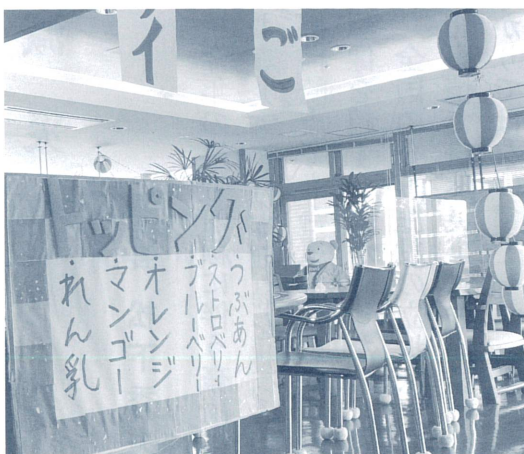 イ
ご
トッピング
・つぶあん
・ストロベリー
・ブルーベリー
・オレンジ
・マンゴー
・れん乳